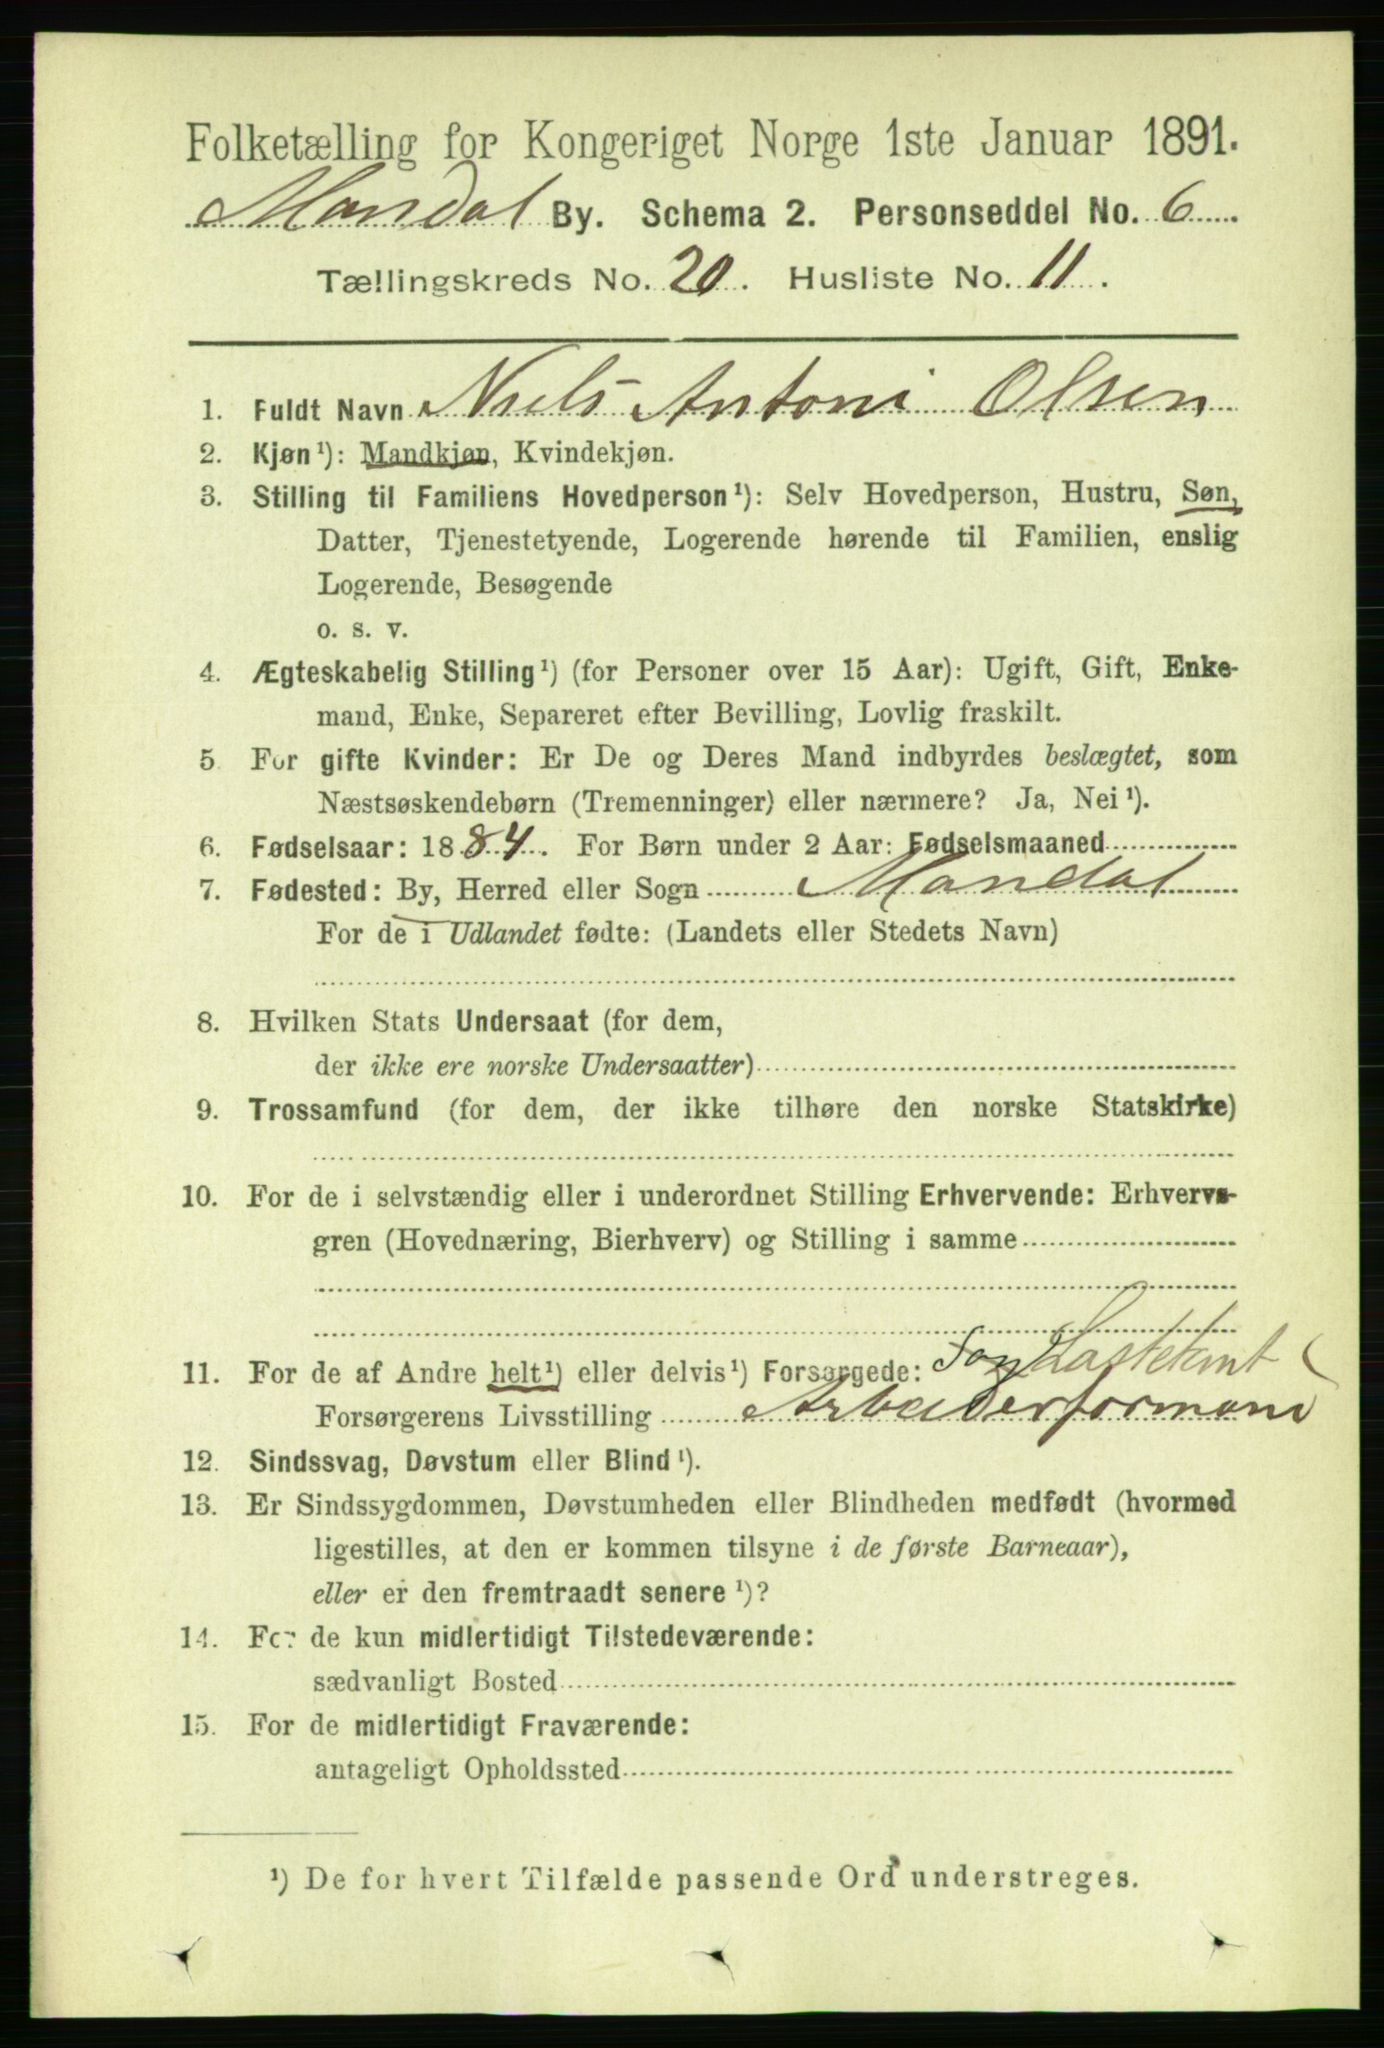 Folketælling for Kongeriget Norge 1ste Januar 1891.
Mandal By. Schema 2. Personseddel No. 6
Tællingskreds No. 20. Husliste No. 11.
1. Fuldt Navn Niels Antoni Olsen
2. Kjøn¹): Mandkjøn, Kvindekjøn.
3. Stilling til Familiens Hovedperson¹): Selv Hovedperson, Hustru, Søn,
Datter, Tjenestetyende, Logerende hørende til Familien, enslig
Logerende, Besøgende
o. s. v.
4. Ægteskabelig Stilling¹) (for Personer over 15 Aar): Ugift, Gift, Enke-
mand, Enke, Separeret efter Bevilling, Lovlig fraskilt.
5 For gifte Kvinder: Er De og Deres Mand indbyrdes beslægtet, som
Næstsøskendebørn (Tremenninger) eller nærmere? Ja, Nei¹).
6. Fødselsaar: 1884. For Børn under 2 Aar: Fødselsmaaned
7. Fødested: By, Herred eller Sogn Mandal
For de i Udlandet fødte: (Landets eller Stedets Navn)
8. Hvilken Stats Undersaat (for dem,
der ikke ere norske Undersaatter)
9. Trossamfund (for dem, der ikke tilhøre den norske Statskirke)
10. For de i selvstændig eller i underordnet Stilling Erhvervende: Erhvervs-
gren (Hovednæring, Bierhverv) og Stilling i samme
11. For de af Andre helt¹) eller delvis¹) Forsørgede:
Forsørgerens Livsstilling Arbeiderformand
12. Sindssvag, Døvstum eller Blind¹).
13. Er Sindssygdommen, Døvstumheden eller Blindheden medfødt (hvormed
ligestilles, at den er kommen tilsyne i de første Barneaar),
eller er den fremtraadt senere¹)?
14. For de kun midlertidigt Tilstedeværende:
sædvanligt Bosted
15. For de midlertidigt Fraværende:
antageligt Opholdssted
¹) De for hvert Tilfælde passende Ord understreges.